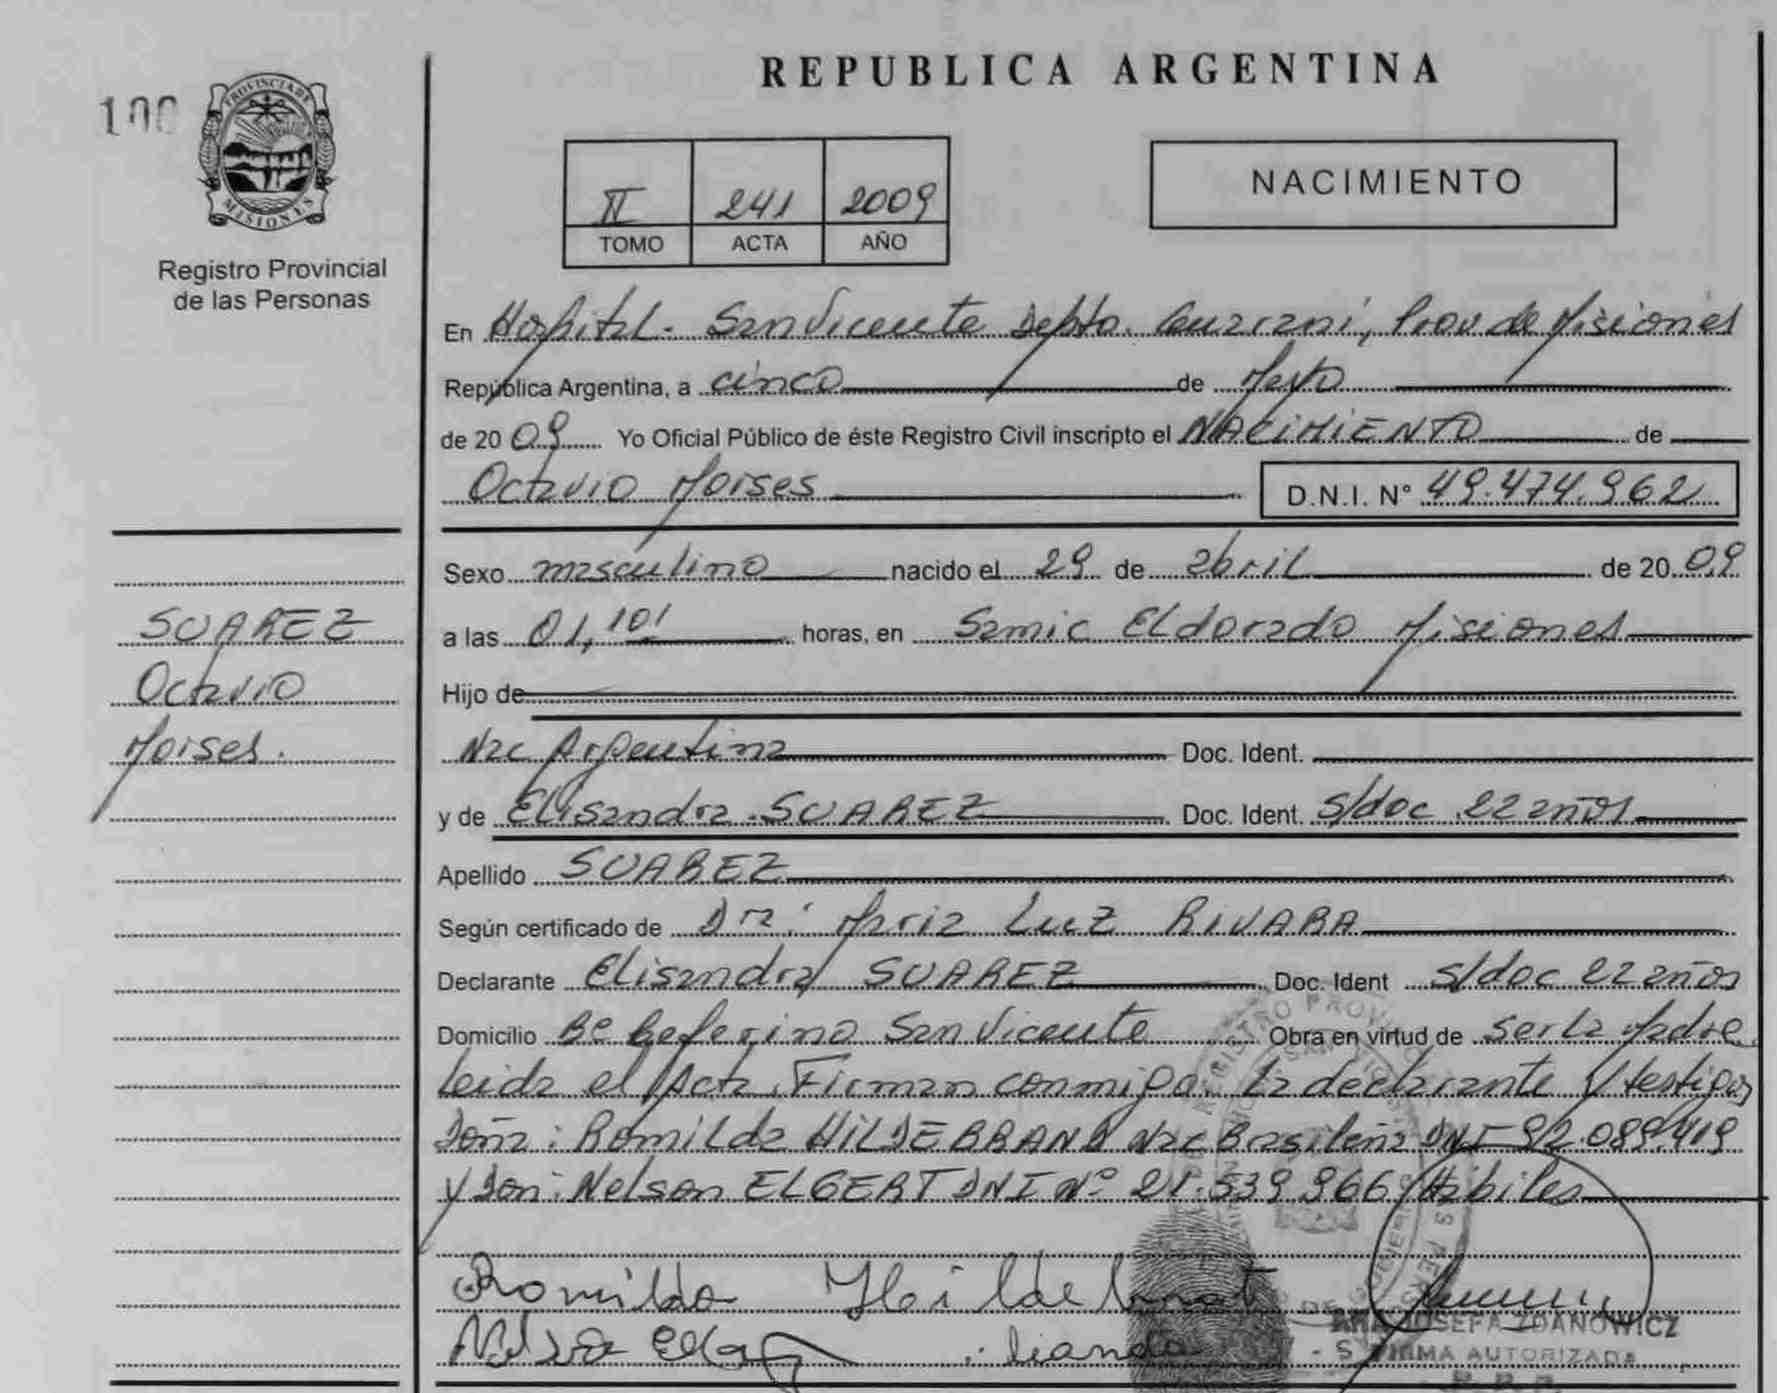 REPUBLICA ARGENTINA
PROVINCIA DE
MISIONES
Registro Provincial
de las Personas
II 241 2009
TOMO ACTA AÑO
NACIMIENTO
En Hospital - San Vicente Depto. Guarani, Prov de Misiones
República Argentina, a cinco de Mayo
de 2009 Yo Oficial Público de éste Registro Civil inscripto el NACIMIENTO de
Octavio Moises D.N.I. N° 49.474.962
Sexo masculino nacido el 29 de abril de 2009
a las 01,10 horas, en Samic Eldorado Misiones
Hijo de
Nac Argentina Doc. Ident.
y de Elisandra SUAREZ Doc. Ident. S/doc 22 años
Apellido SUAREZ
Según certificado de Dra: Maria Luz RIVARA
Declarante Elisandra SUAREZ Doc. Ident S/doc 22 años
Domicilio Bº Ceferino San Vicente Obra en virtud de ser la Madre
leida el Acta, Firman conmigo la declarante y testigos
Doña: Romilda HILDEBRAND Nac Brasileña DNI 92.089.419
y Don: Nelson ELGERT DNI Nº 21.539.966 Hábiles
SUAREZ
Octavio
Moises.
Romilda
JOSEFA ZDANOWICZ
FIRMA AUTORIZADA